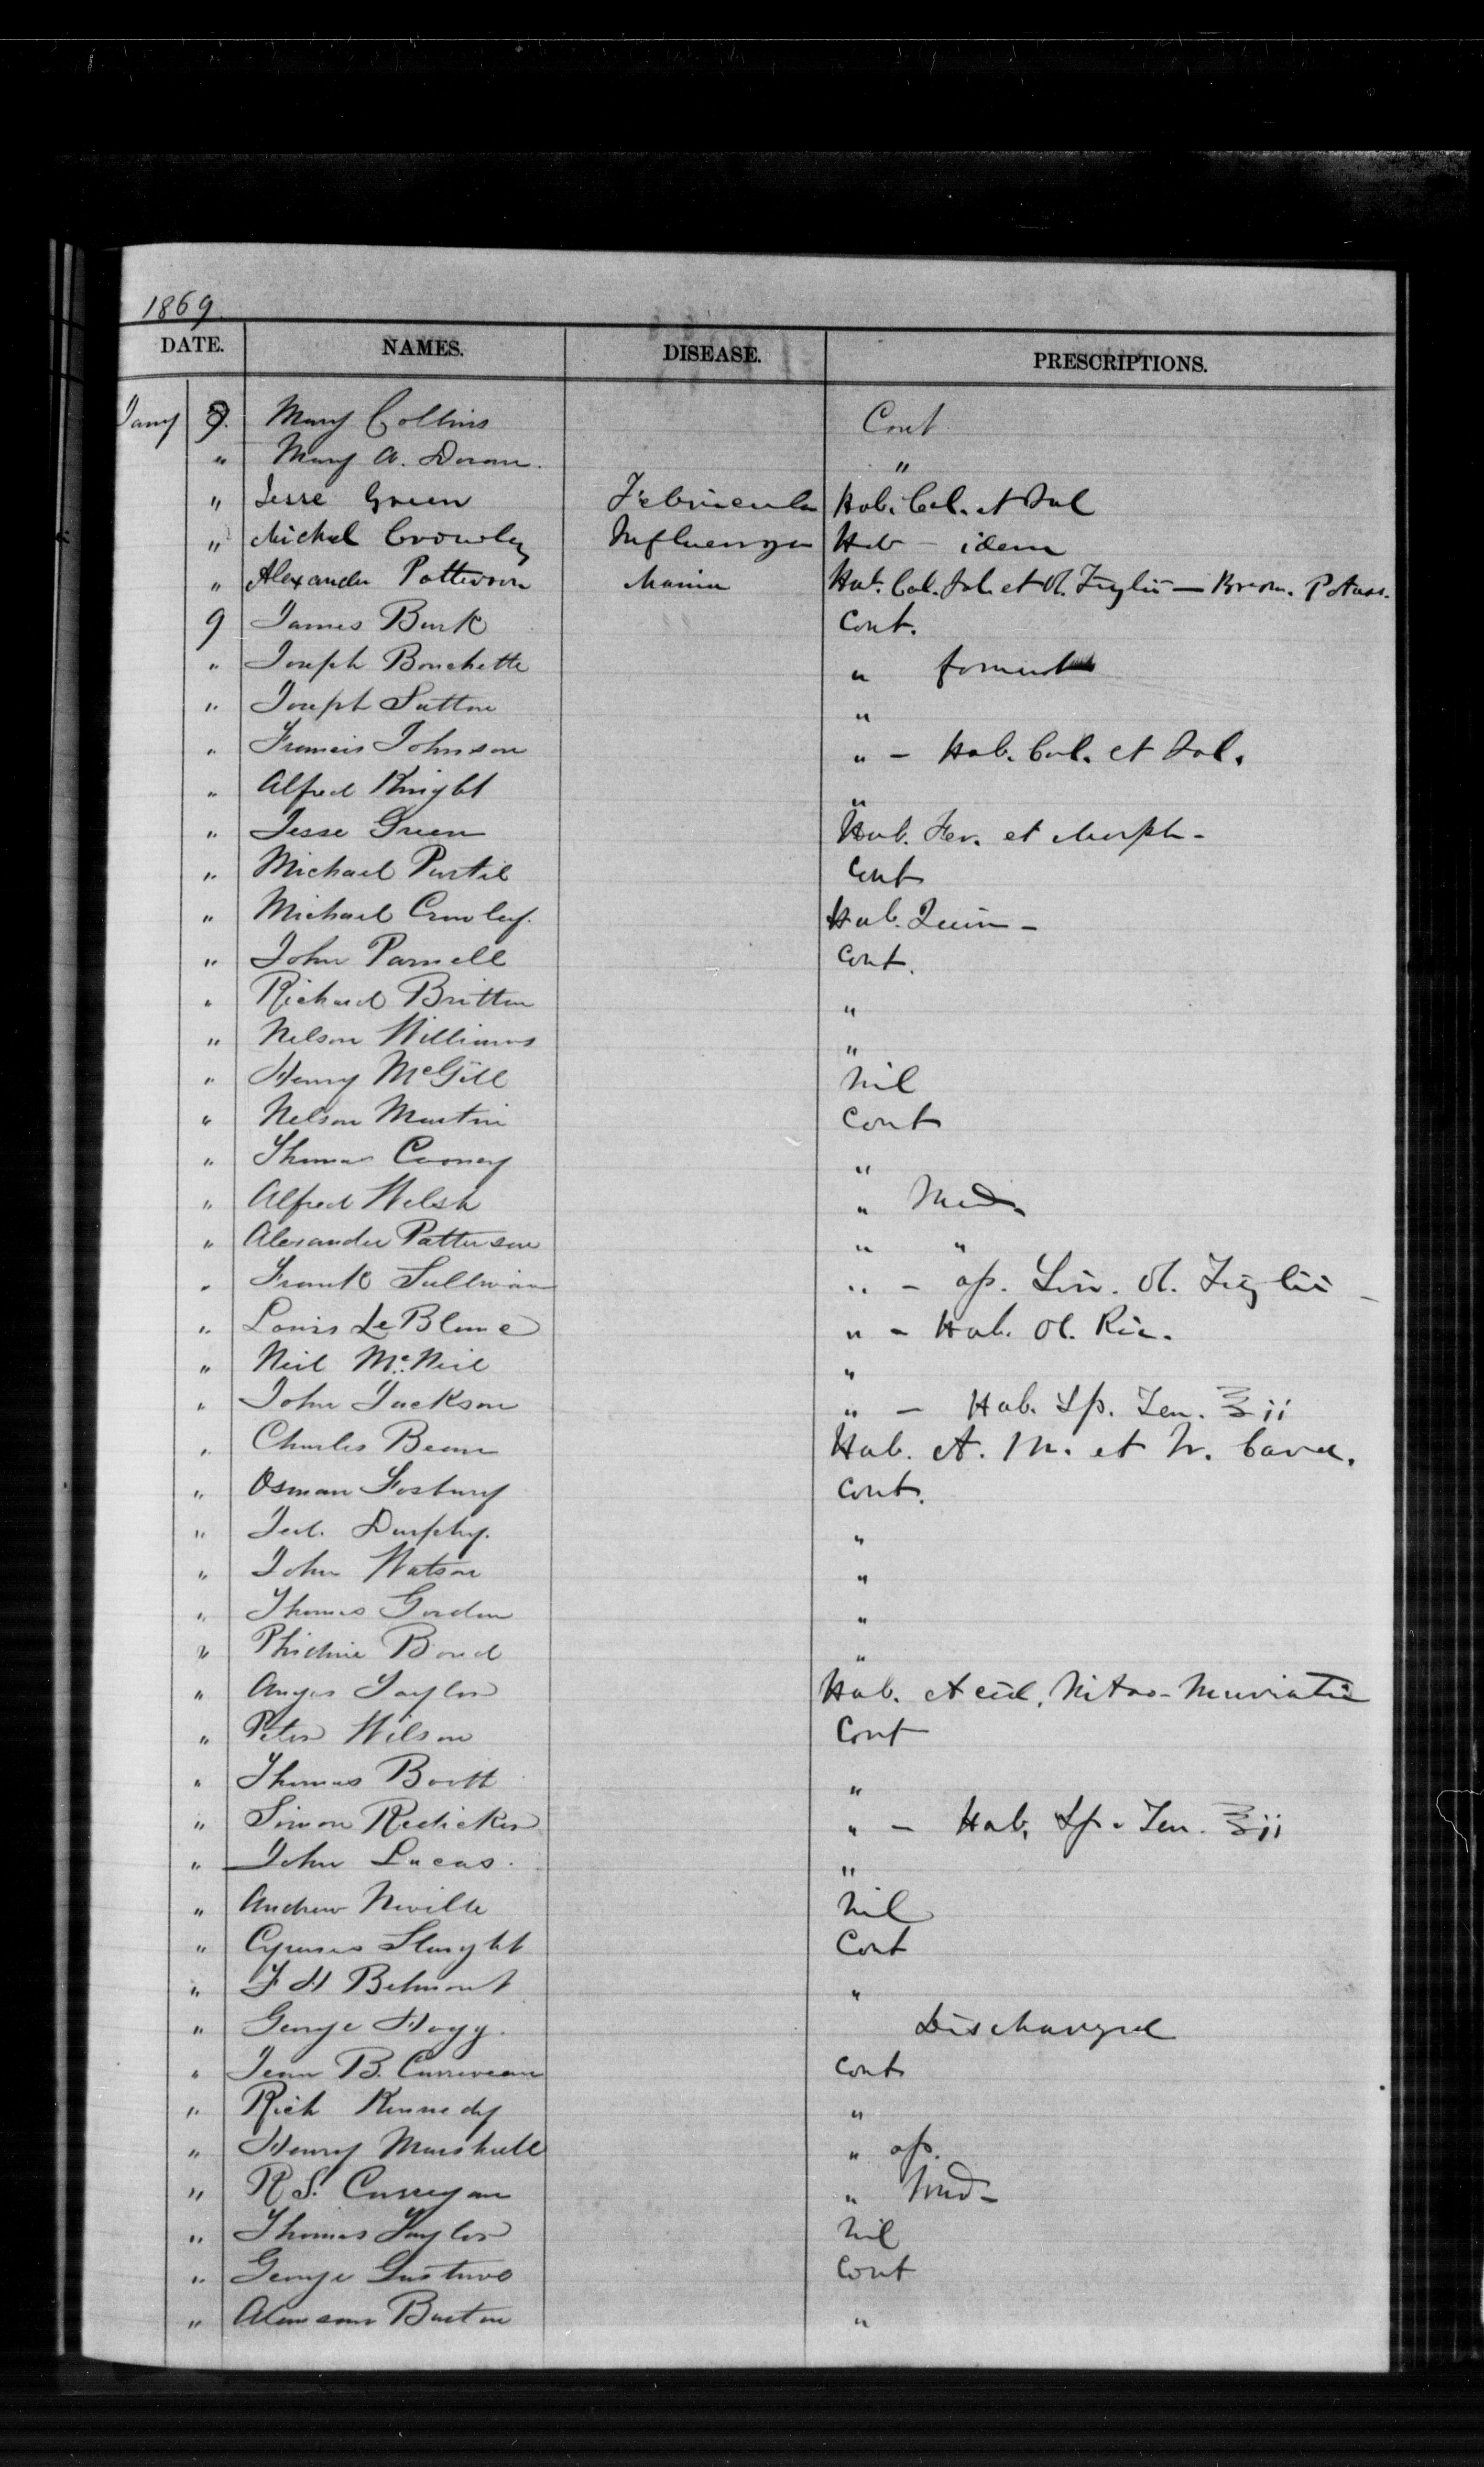 1869.
DATE. NAMES. DISEASE. PRESCRIPTIONS.
Jany 8. Mary Collins Cont
" Mary A. Doran. "
" Jesse Green Febricula Hab. Cal. et Jal
" Michael Crowley Influenza Hab - idem
" Alexander Patterson Mania Hab. Cal. Jal. et Ol. Tiglii — Brom. Potass.
9 James Burk Cont.
" Joseph Bouchette " foment
" Joseph Sutton "
" Francis Johnson " - Hab. Cal. et Jal.
" Alfred Knight "
" Jesse Green Hab. Fer. et Morph -
" Michael Purtil Cont
" Michael Crowley. Hab. Quin -
" John Parnell Cont.
" Richard Britton "
" Nelson Williams "
" Henry McGill Nil
" Nelson Martin Cont
" Thomas Cooney "
" Alfred Welsh " Med.
" Alexander Patterson " "
" Frank Sullivan " - op. Lin. Ol. Tiglii -
" Louis LeBlanc " - Hab. Ol. Ric.
" Neil McNeil "
" John Jackson " - Hab. Sp. Ten. ʒii
" Charles Bean Hab. A. M. et Tr. Card.
" Osman Fosbury Cont.
" Jed. Durphy. "
" John Watson "
" Thomas Gordon "
" Bond "
" Angus Taylor Hab. Acid. Nitro-Muriatic
" Peter Wilson Cont
" Thomas Booth "
" Simon Redicker " - Hab. Sp. Ten. ʒii
" John Lucas. "
" Andrew Neville Nil
" Cyrenus Slaught Cont
" F H Belmont "
" George Hogg. Discharged
" Jean B. Curriveau Cont
" Rich Kennedy "
" Henry Marshall " op.
" R S. Corrigan " Med -
" Thomas Taylor Nil
" George Gustavo Cont
" Alanson Burton "